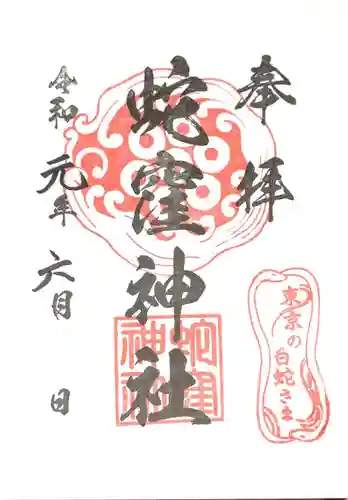 奉拝
蛇窪神社
令和元年六月 日
東京の白蛇さま
蛇窪
神社